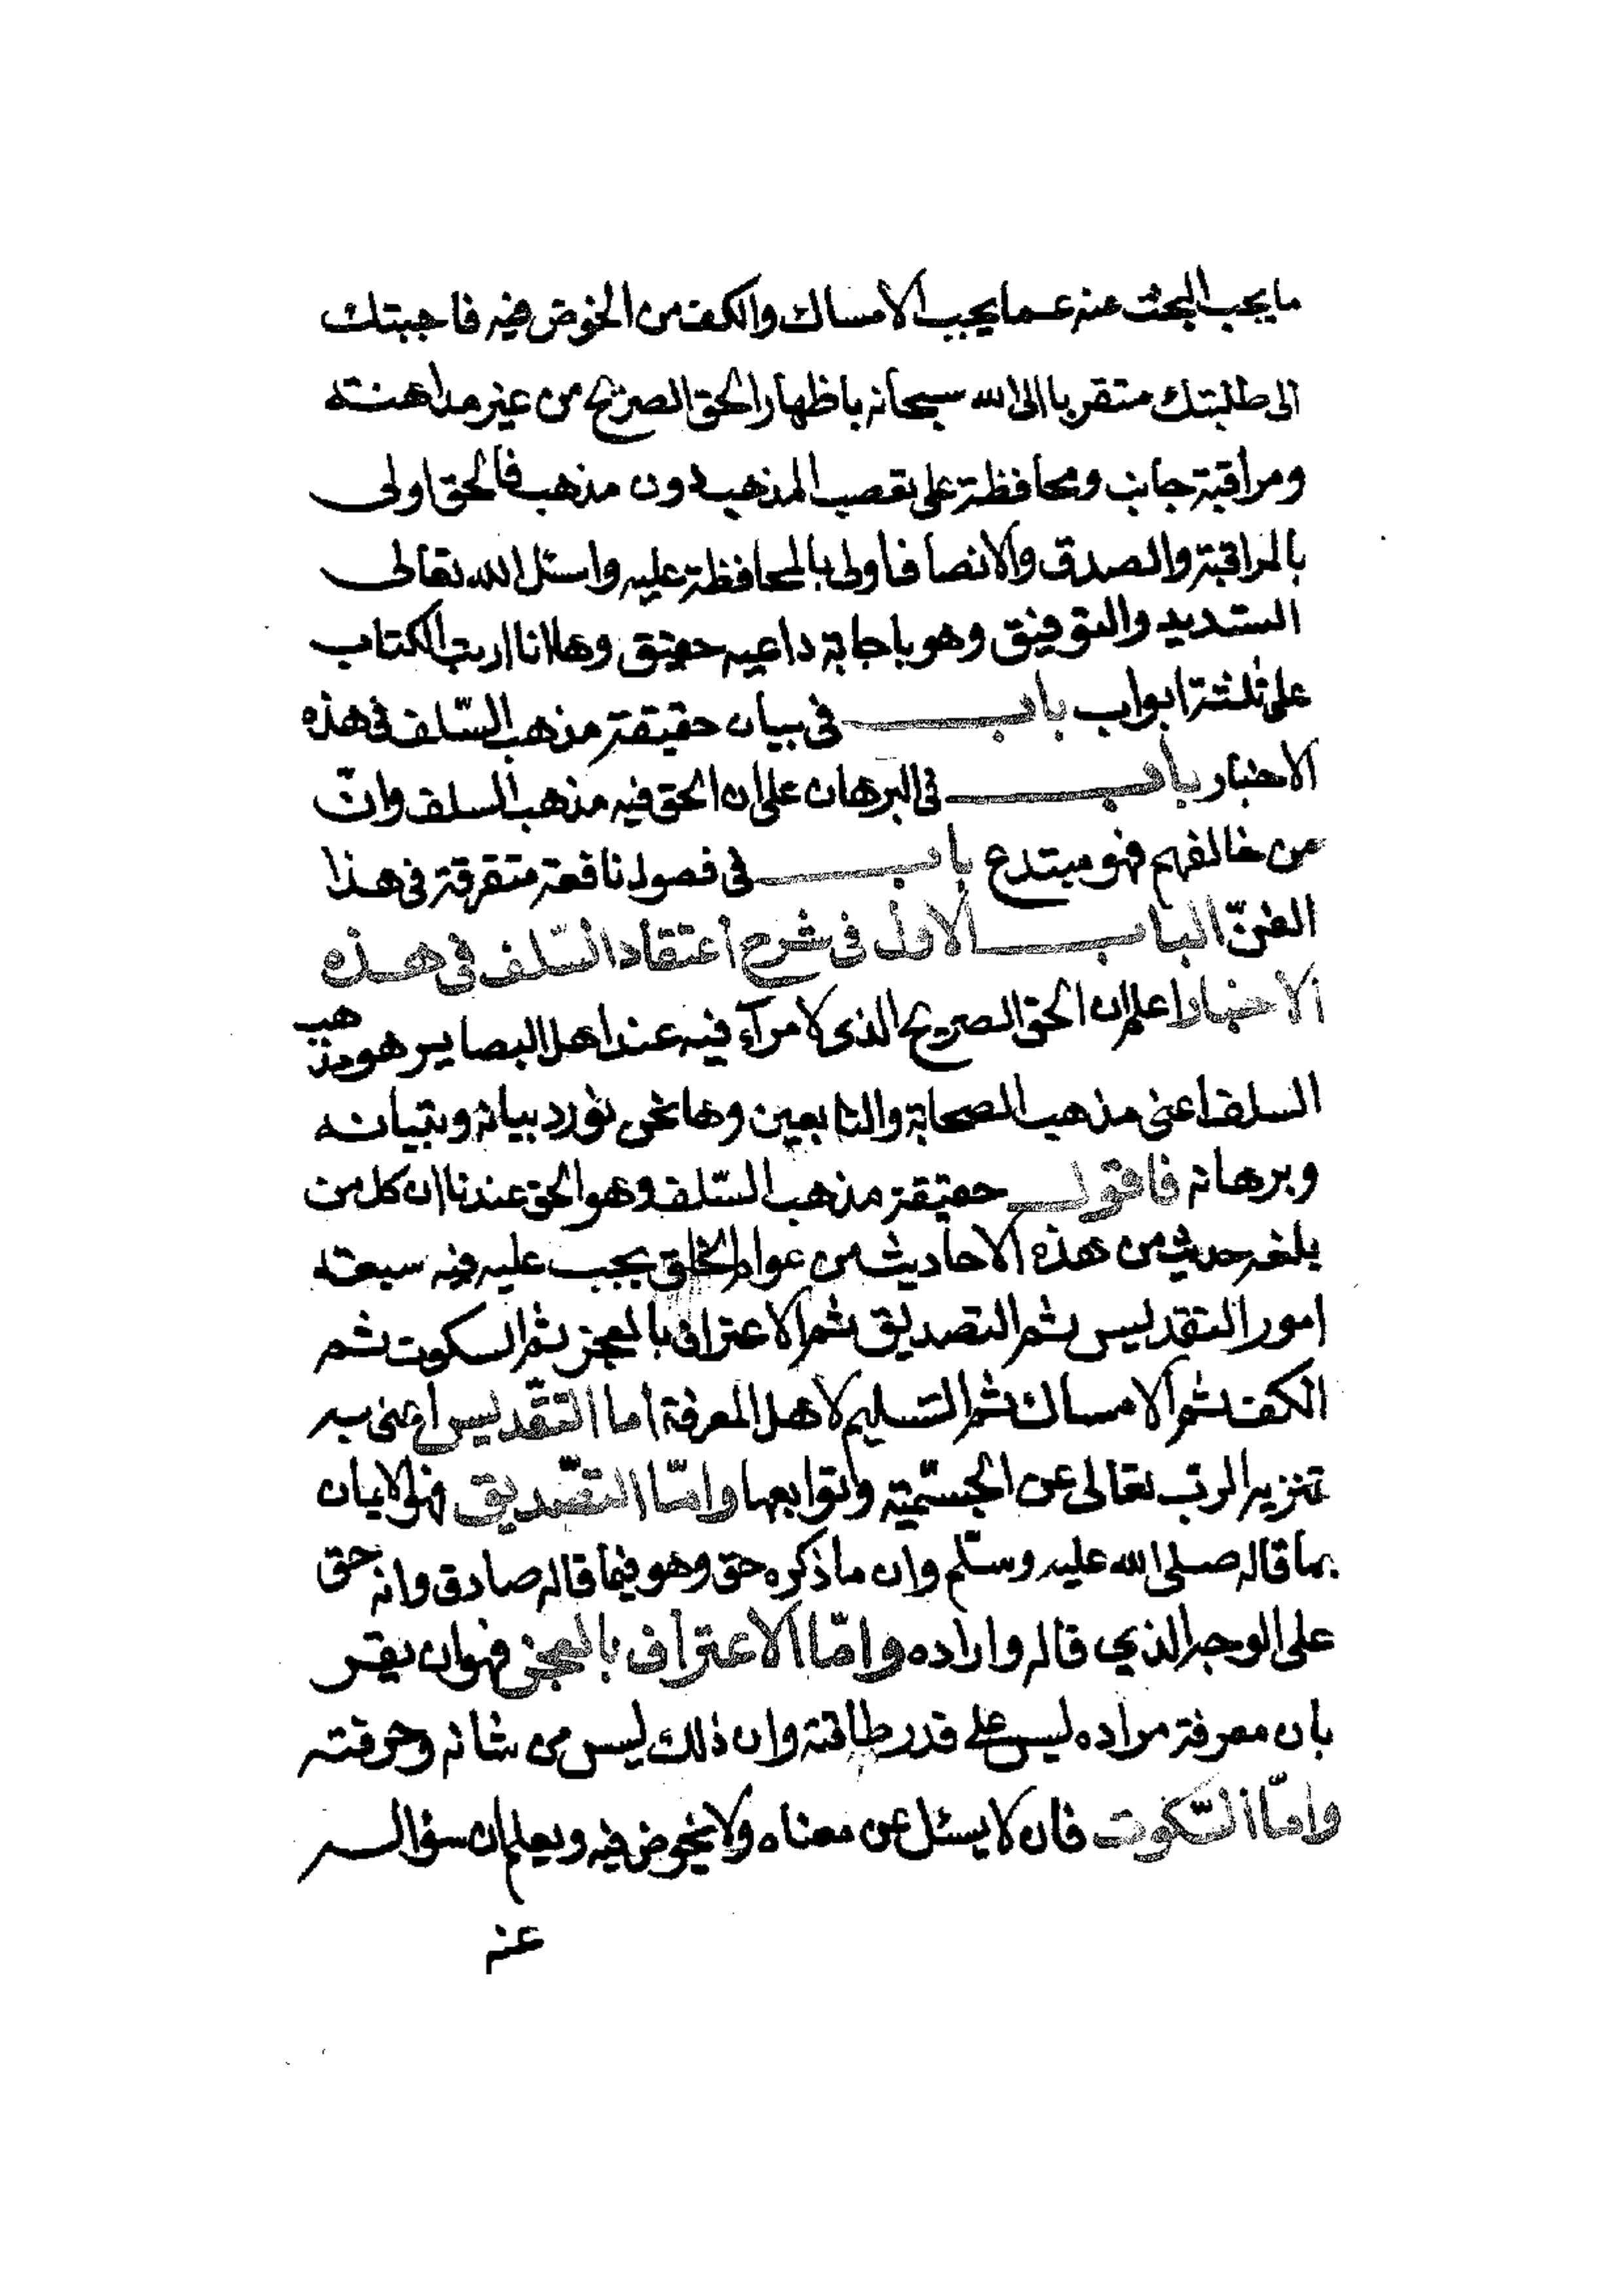 ما يجب البحث عنه عما يجب الامساك والكف من الخوض فيه فاجبتك
الى طلبتك متقربا الى الله سبحانه باظهار الحق الصريح من غير مداهنة
ومراقبة جانب ومحافظة على تعصب المذهب دون مذهب فالحق اولى
بالمراقبة والصدق والانصاف اولى بالمحافظة عليه واسئل الله تعالى
التسديد والتوفيق وهو باجابة داعيه حقيق وها انا ارتب الكتاب
على ثلثة ابواب باب في بيان حقيقة مذهب السّلف في هذه
الاخبار باب في البرهان على ان الحق فيه مذهب السلف وانّ
من خالفهم فهو مبتدع باب في فصول نافعة متفرقة في هذا
الفنّ الباب الاول في شرح اعتقاد السّلف في هذه
الاخبار اعلم ان الحق الصريح الذى لا مرآء فيه عند اهل البصاير هو مذهب
السلف اعنى مذهب الصحابة والتابعين وها نحن نورد بيانه وتبيانه
وبرهانه فاقول حقيقة مذهب السّلف وهو الحق عندنا ان كل من
بلغه حديث من هذه الاحاديث من عوام الخلق يجب عليه فيه سبعة
امور التقديس ثم التصديق ثم الاعتراف بالعجز ثم السكوت ثم
الكف ثم الامساك ثم التسليم لاهل المعرفة اما التقديس اعنى به
تنزيه الرب تعالى عن الجسّميّة وتوابعها وامّا التصّديق فهو الايمان
بما قاله صلى الله عليه وسلّم وان ما ذكره حق وهو فيما قاله صادق وانه حق
على الوجه الذي قاله واراده وامّا الاعتراف بالعجز فهو ان يقر
بان معرفة مراده ليس على قدر طاقته وان ذلك ليس من شانه وحرفته
وامّا السّكوت فان لا يسئل عن معناه ولا يخوض فيه ويعلم ان سؤاله
عنه